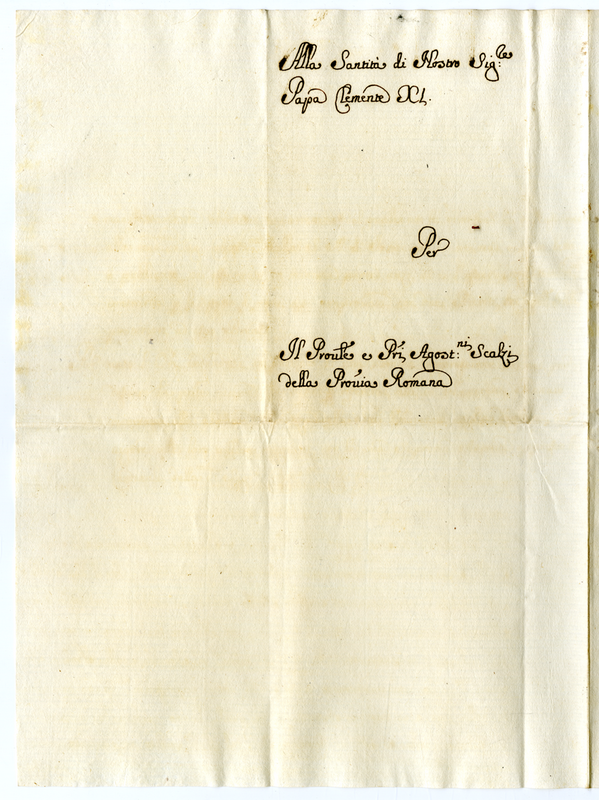 Alla Santità di Nostro Sig:re
Papa Clemente XI.
Per
Il Proule e Pri Agost:ni Scalzi
della Prouia Romana